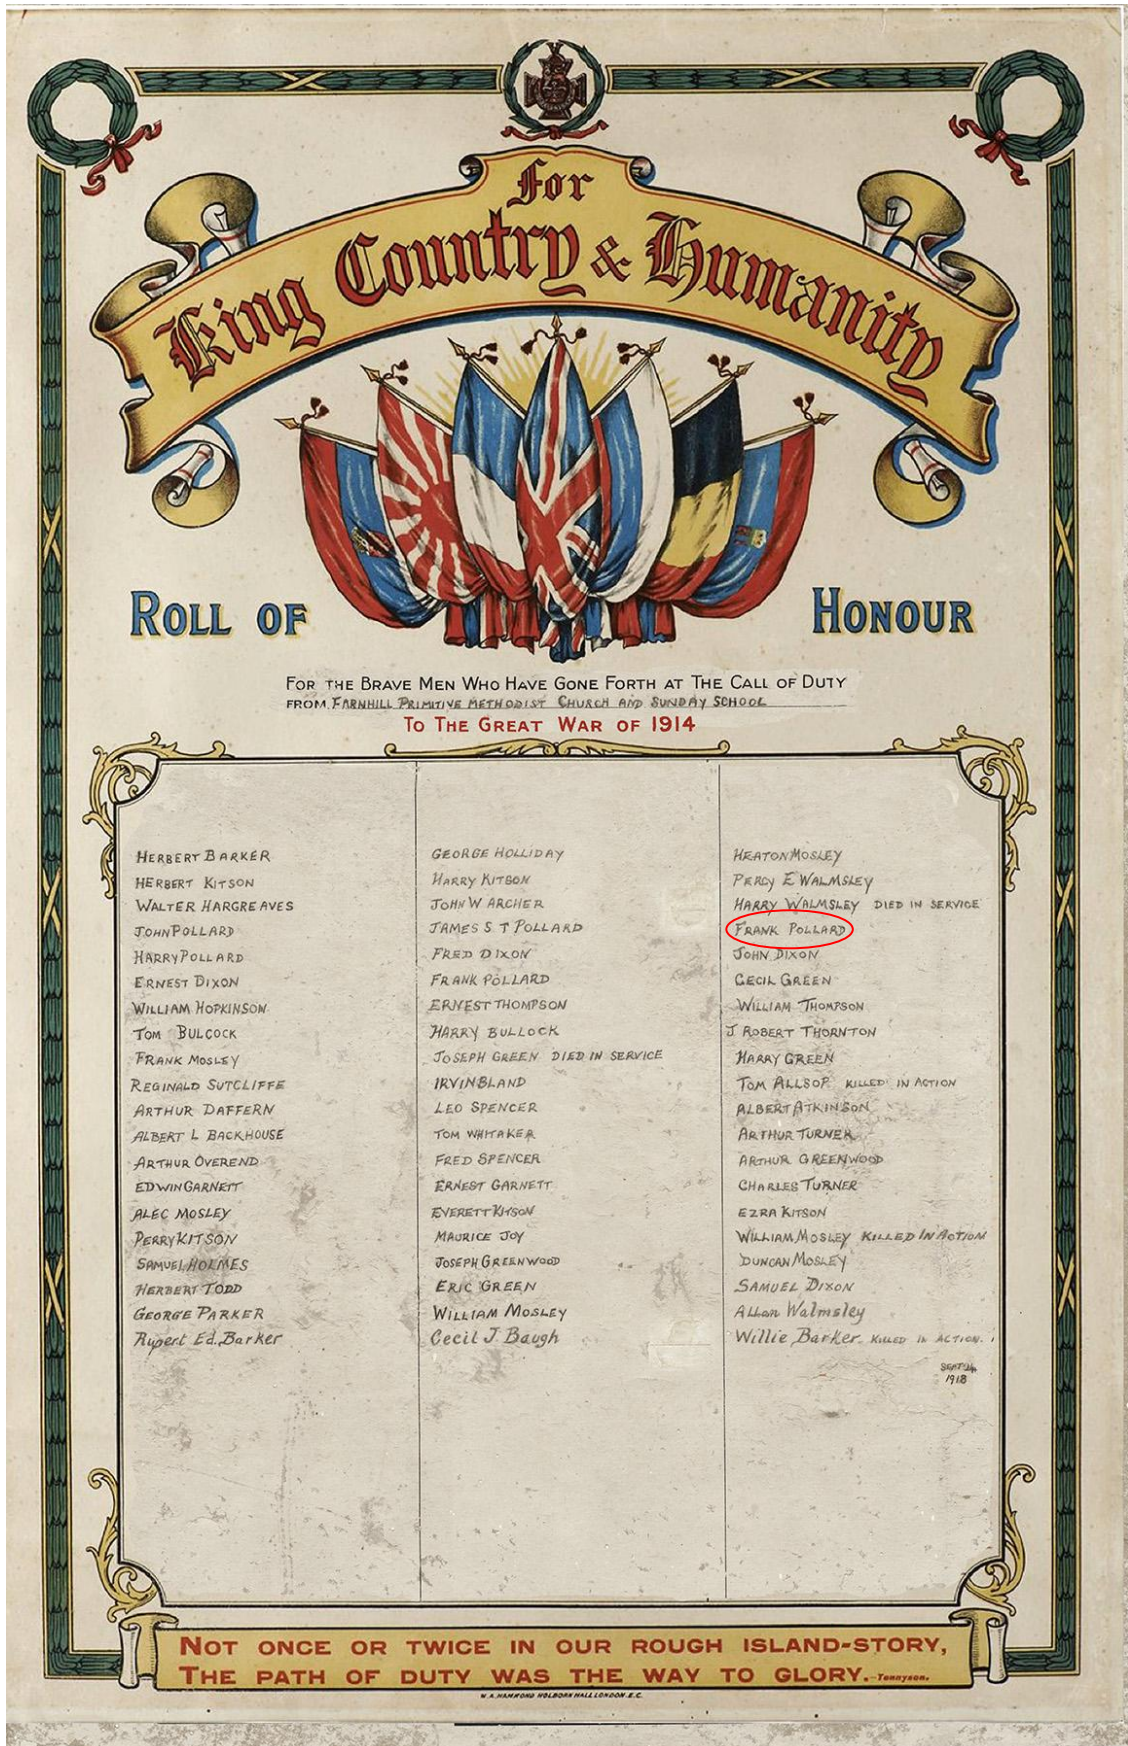 For
King Country & Humanity
ROLL OF HONOUR
FOR THE BRAVE MEN WHO HAVE GONE FORTH AT THE CALL OF DUTY
FROM FARNHILL PRIMITIVE METHODIST CHURCH AND SUNDAY SCHOOL
TO THE GREAT WAR OF 1914
HERBERT BARKER
HERBERT KITSON
WALTER HARGREAVES
JOHN POLLARD
HARRY POLLARD
ERNEST DIXON
WILLIAM HOPKINSON
TOM BULCOCK
FRANK MOSLEY
REGINALD SUTCLIFFE
ARTHUR DAFFERN
ALBERT L BACKHOUSE
ARTHUR OVEREND
EDWIN GARNETT
ALEC MOSLEY
PERRY KITSON
SAMUEL HOLMES
HERBERT TODD
GEORGE PARKER
Rupert Ed. Barker
GEORGE HOLLIDAY
HARRY KITSON
JOHN W ARCHER
JAMES S T POLLARD
FRED DIXON
FRANK POLLARD
ERNEST THOMPSON
HARRY BULLOCK
JOSEPH GREEN DIED IN SERVICE
IRVIN BLAND
LEO SPENCER
TOM WHITAKER
FRED SPENCER
ERNEST GARNETT
EVERETT KITSON
MAURICE JOY
JOSEPH GREENWOOD
ERIC GREEN
WILLIAM MOSLEY
Cecil J Baugh
HEATON MOSLEY
PERCY E WALMSLEY
HARRY WALMSLEY DIED IN SERVICE
FRANK POLLARD
JOHN DIXON
CECIL GREEN
WILLIAM THOMPSON
J ROBERT THORNTON
HARRY GREEN
TOM ALLSOP KILLED IN ACTION
ALBERT ATKINSON
ARTHUR TURNER
ARTHUR GREENWOOD
CHARLES TURNER
EZRA KITSON
WILLIAM MOSLEY KILLED IN ACTION
DUNCAN MOSLEY
SAMUEL DIXON
Allan Walmsley
Willie Barker KILLED IN ACTION.
SEPT 24
1918
NOT ONCE OR TWICE IN OUR ROUGH ISLAND-STORY,
THE PATH OF DUTY WAS THE WAY TO GLORY.-Tennyson.
W.A. HAMMOND HOLBORN HALL LONDON. E.C.